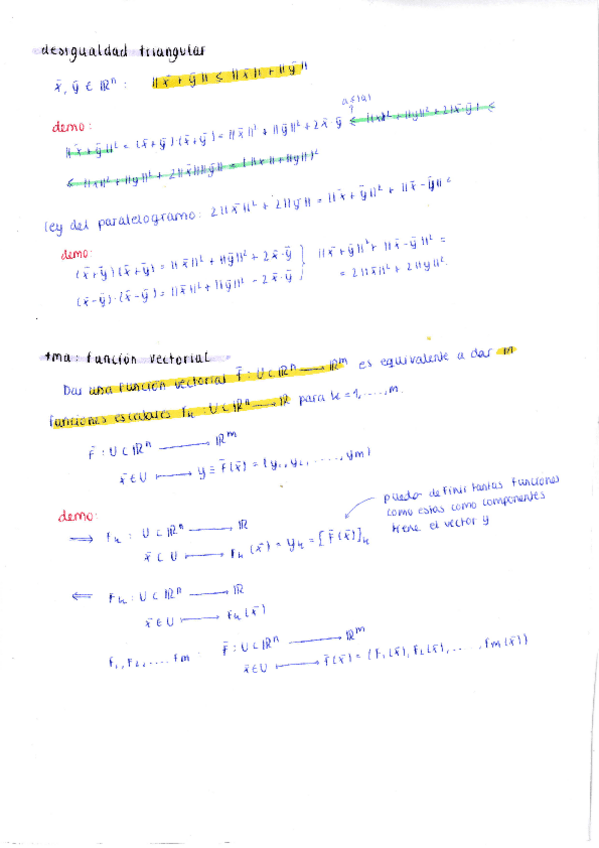 desigualdad triangular
x̄, ȳ ∈ ℝⁿ : ||x̄ + ȳ|| ≤ ||x̄|| + ||ȳ||
demo:
||x̄ + ȳ||² = (x̄+ȳ)·(x̄+ȳ) = ||x̄||² + ||ȳ||² + 2x̄·ȳ ≤ ||x̄||² + ||y||² + 2|x̄·ȳ| ≤
≤ ||x̄||² + ||y||² + 2||x̄||||ȳ|| = (||x̄|| + ||y||)²
ley del paralelogramo: 2||x̄||² + 2||ȳ||² = ||x̄ + ȳ||² + ||x̄ - ȳ||²
demo:
(x̄+ȳ)·(x̄+ȳ) = ||x̄||² + ||ȳ||² + 2x̄·ȳ } ||x̄ + ȳ||² + ||x̄ - ȳ||² =
(x̄-ȳ)·(x̄-ȳ) = ||x̄||² + ||ȳ||² - 2x̄·ȳ = 2||x̄||² + 2||y||²
tma: función vectorial
Dar una función vectorial F̄ : U ⊂ ℝⁿ → ℝᵐ es equivalente a dar m
funciones escalares Fₖ : U ⊂ ℝⁿ → ℝ para k = 1, ..., m.
F̄ : U ⊂ ℝⁿ → ℝᵐ
x̄ ∈ U ↦ y ≡ F̄(x̄) = (y₁, y₂, ....., yₘ)
demo:
puedo definir tantas funciones
como estas como componentes
tiene el vector y
⟹ Fₖ : U ⊂ ℝⁿ → ℝ
x̄ ∈ U ↦ Fₖ(x̄) = yₖ = [F̄(x̄)]ₖ
⟸ Fₖ : U ⊂ ℝⁿ → ℝ
x̄ ∈ U ↦ Fₖ(x̄)
F₁, F₂, .... Fₘ F̄ : U ⊂ ℝⁿ → ℝᵐ
x̄ ∈ U ↦ F̄(x̄) = (F₁(x̄), F₂(x̄), ....., Fₘ(x̄))